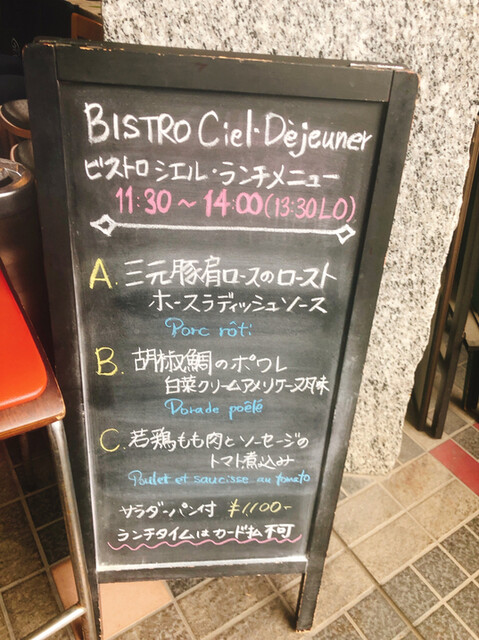 BISTRO Ciel・Dèjeuner
ビストロ シエル・ランチメニュー
11:30〜14:00(13:30LO)
A. 三元豚肩ロースのロースト
ホースラディッシュソース
Porc rôti
B. 胡椒鯛のポワレ
白菜クリームアメリケーヌ風味
Dorade poêlé
C. 若鶏もも肉とソーセージの
トマト煮込み
Poulet et saucisse au tomato
サラダーパン付 ¥1,100-
ランチタイムはカード払不可